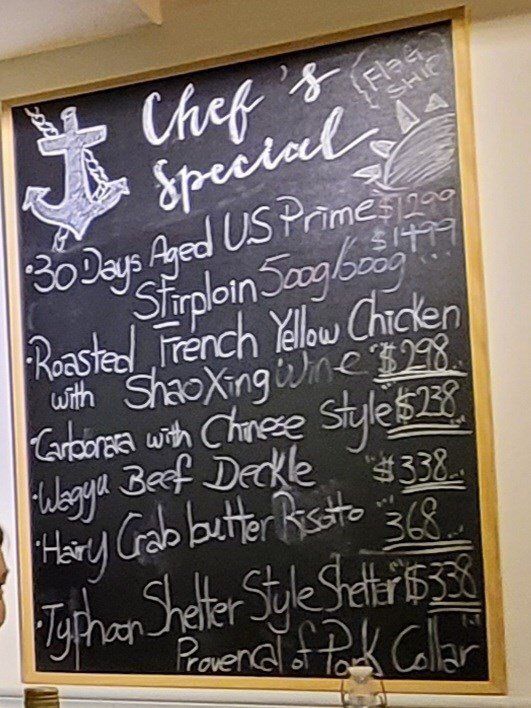 Chef's
Special
FLAG
SHIP
• 30 Days Aged US Prime $1299
$1499
Stirploin 500g/600g
• Roasted French Yellow Chicken
with ShaoXing wine $298
• Carbonara with Chinese Style $238
• Wagyu Beef Deckle $338
• Hairy Crab butter Risotto 368
• Typhoon Shelter Style Shelter $338
Provencal of Pork Collar